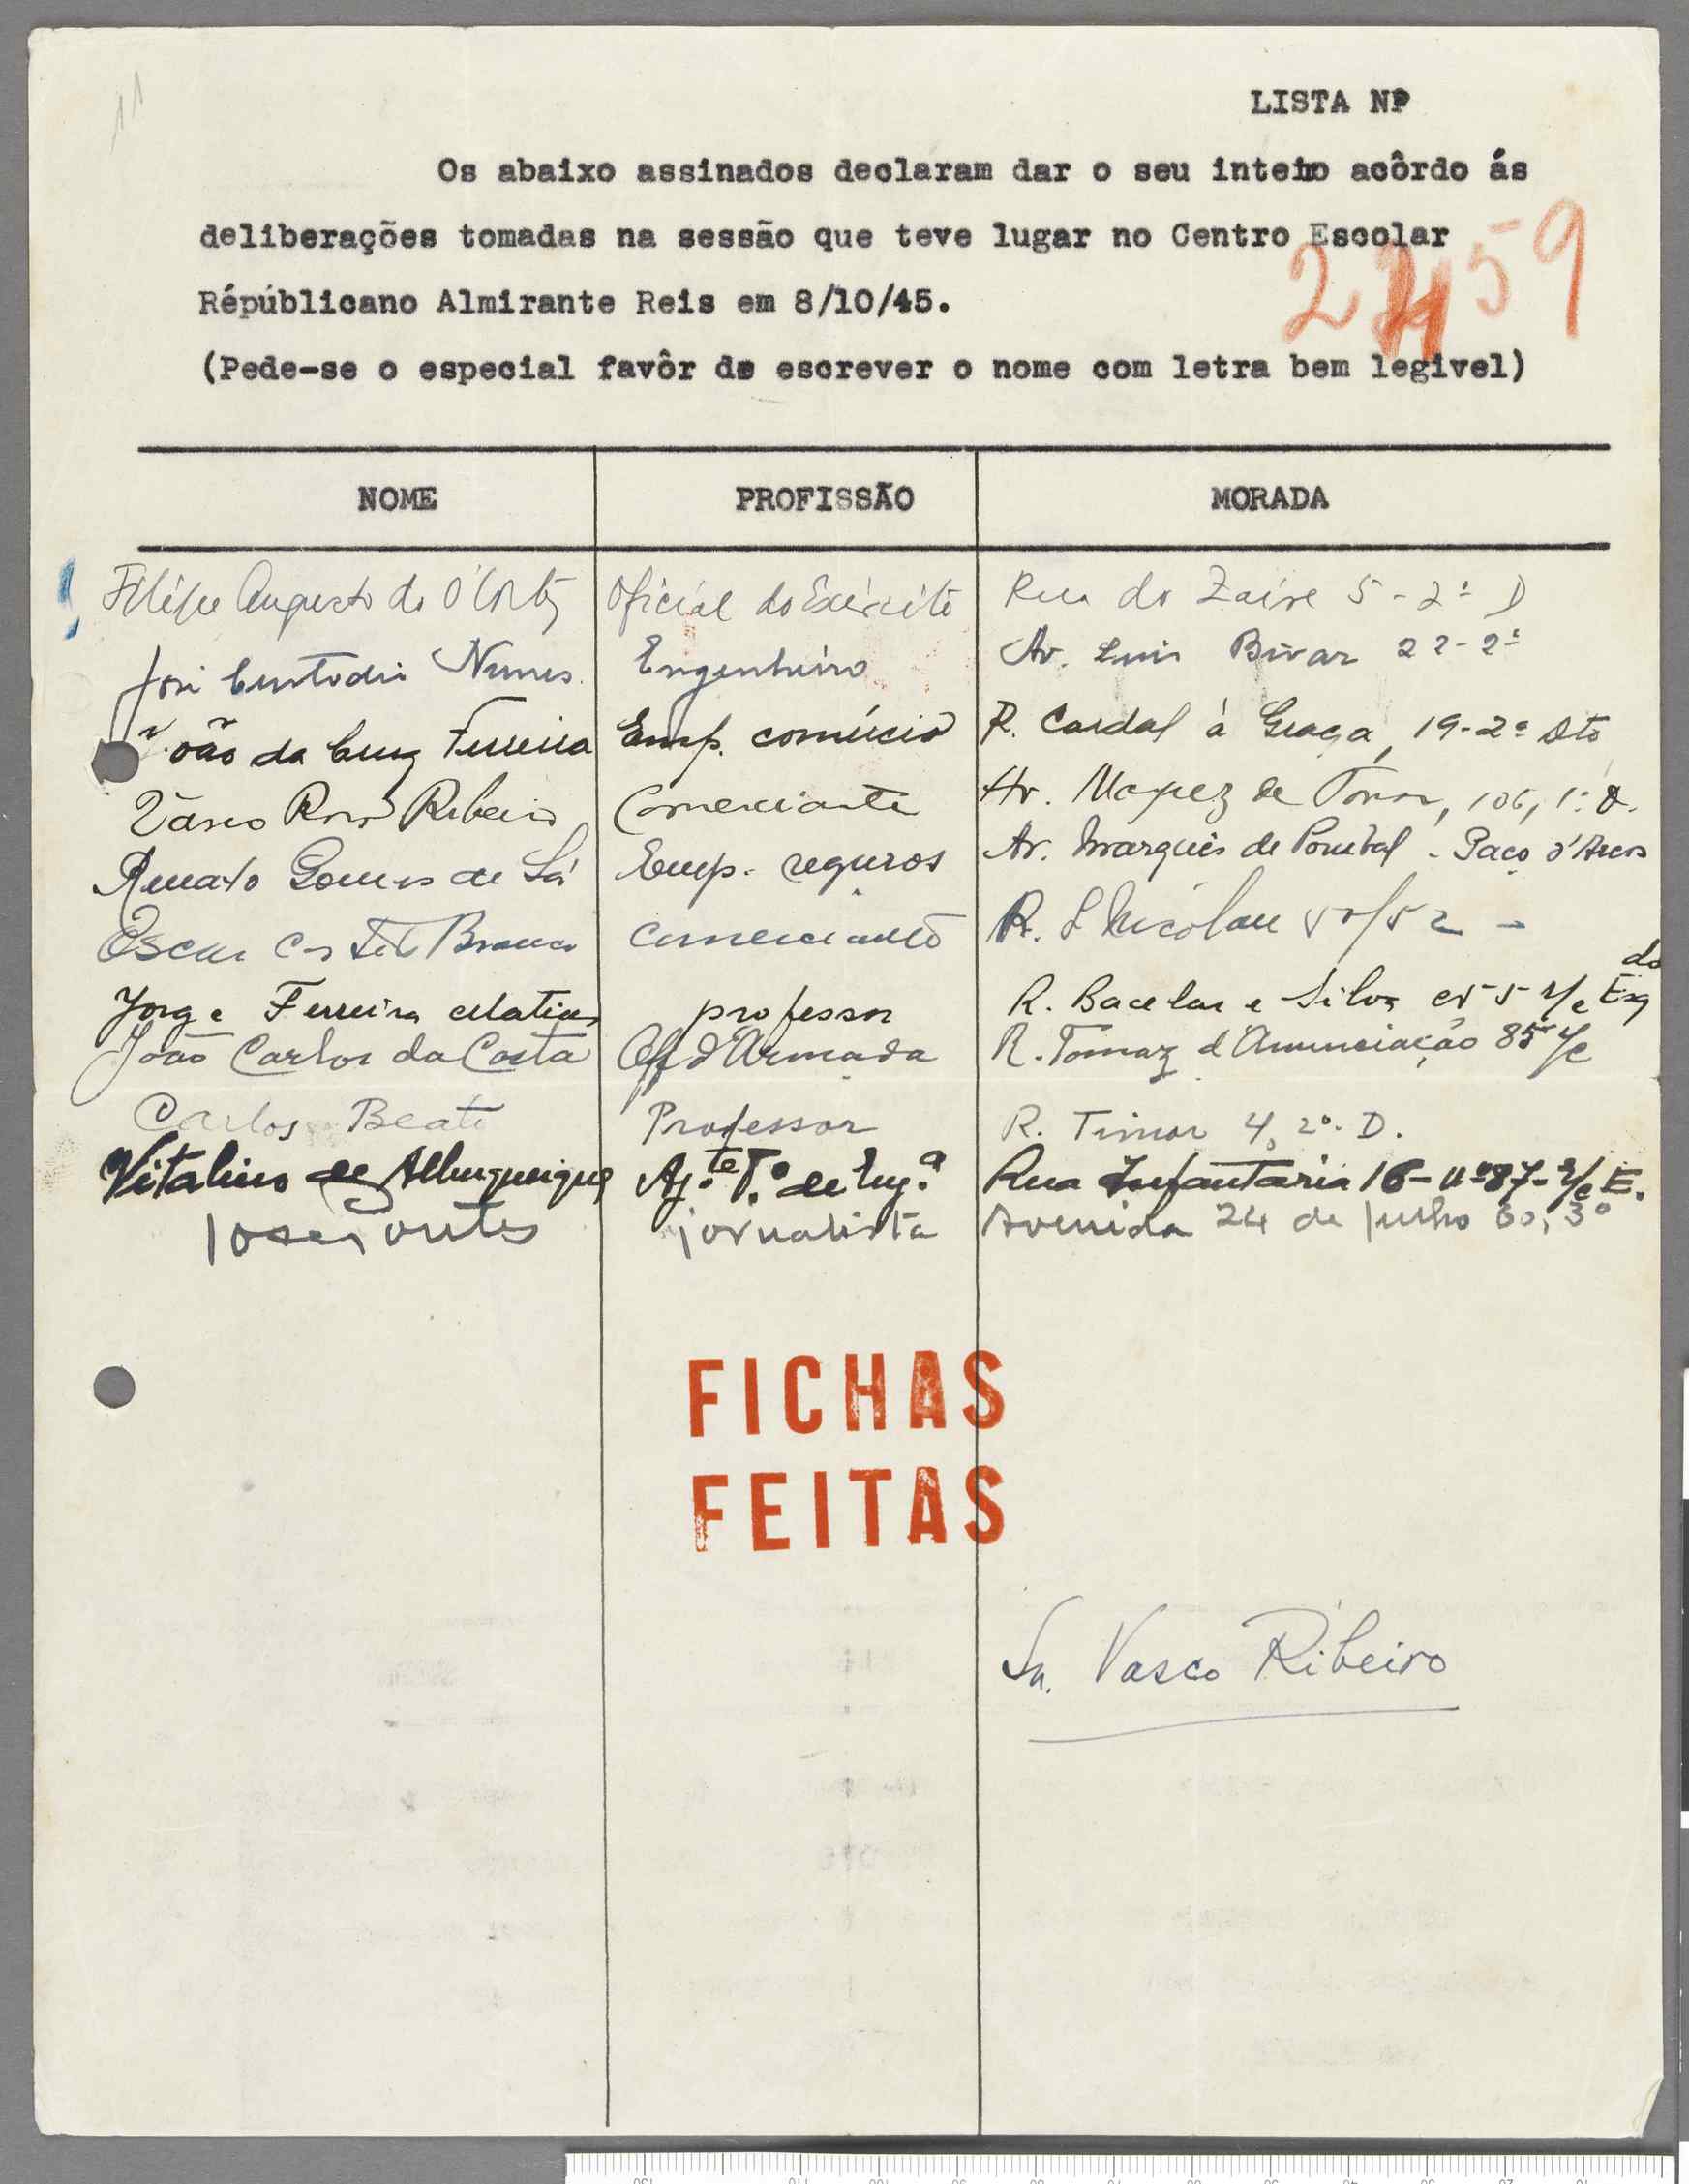 11
LISTA Nº
Os abaixo assinados declaram dar o seu inteiro acôrdo ás
deliberações tomadas na sessão que teve lugar no Centro Escolar
Républicano Almirante Reis em 8/10/45.
59
(Pede-se o especial favôr de escrever o nome com letra bem legivel)
NOME PROFISSÃO MORADA
Filipe Augusto do Ó Costa Oficial do Exército Rua do Zaire 5-2º D
José Custodio Nunes Engenheiro Av. Luis Bivar 22-2º
João da Cruz Ferreira Emp. comércio R. Cardal à Graça, 19-2º Dto
Vasco Ribeiro Comerciante Av. de Tomar, 106, 1º D.
Renato Gomes de Sá Emp. seguros Av. Marquês de Pombal - Paço d'Arcos
Oscar Castelo Branco Comerciante R. S. Nicolau 50/52 -
Jorge Ferreira Matias professor R. Bacelar e Silva nº 5 r/c Esqdo
João Carlos da Costa Off d'Armada R. Tomaz d'Anunciação 85 r/c
Carlos Beato Professor R. Timor 4, 2º. D.
Vitalino de Albuquerque Aj.te T.º de Eng.ª Rua Infantaria 16 - nº 87 - r/c E.
José Fontes jornalista Avenida 24 de Julho 60, 3º
FICHAS
FEITAS
Sr. Vasco Ribeiro